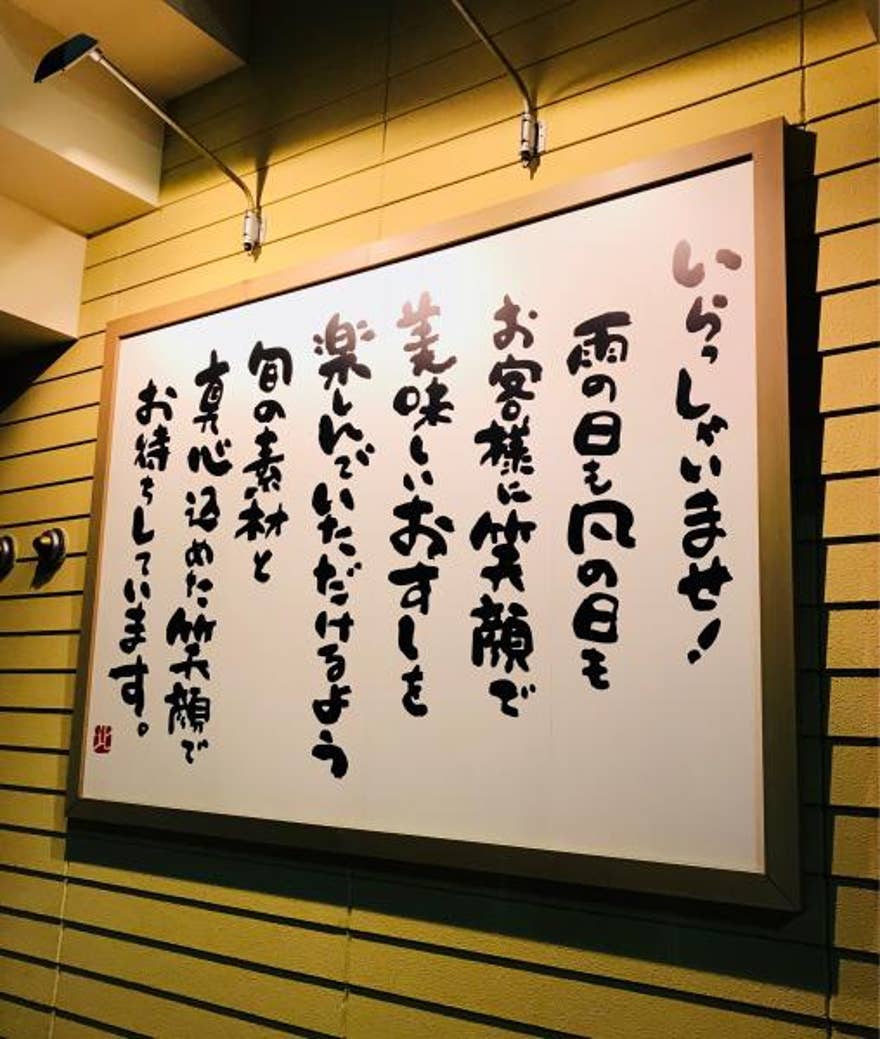 いらっしゃいませ！
雨の日も風の日も
お客様に笑顔で
美味しいおすしを
楽しんでいただけるよう
旬の素材と
真心込めた笑顔で
お待ちしています。